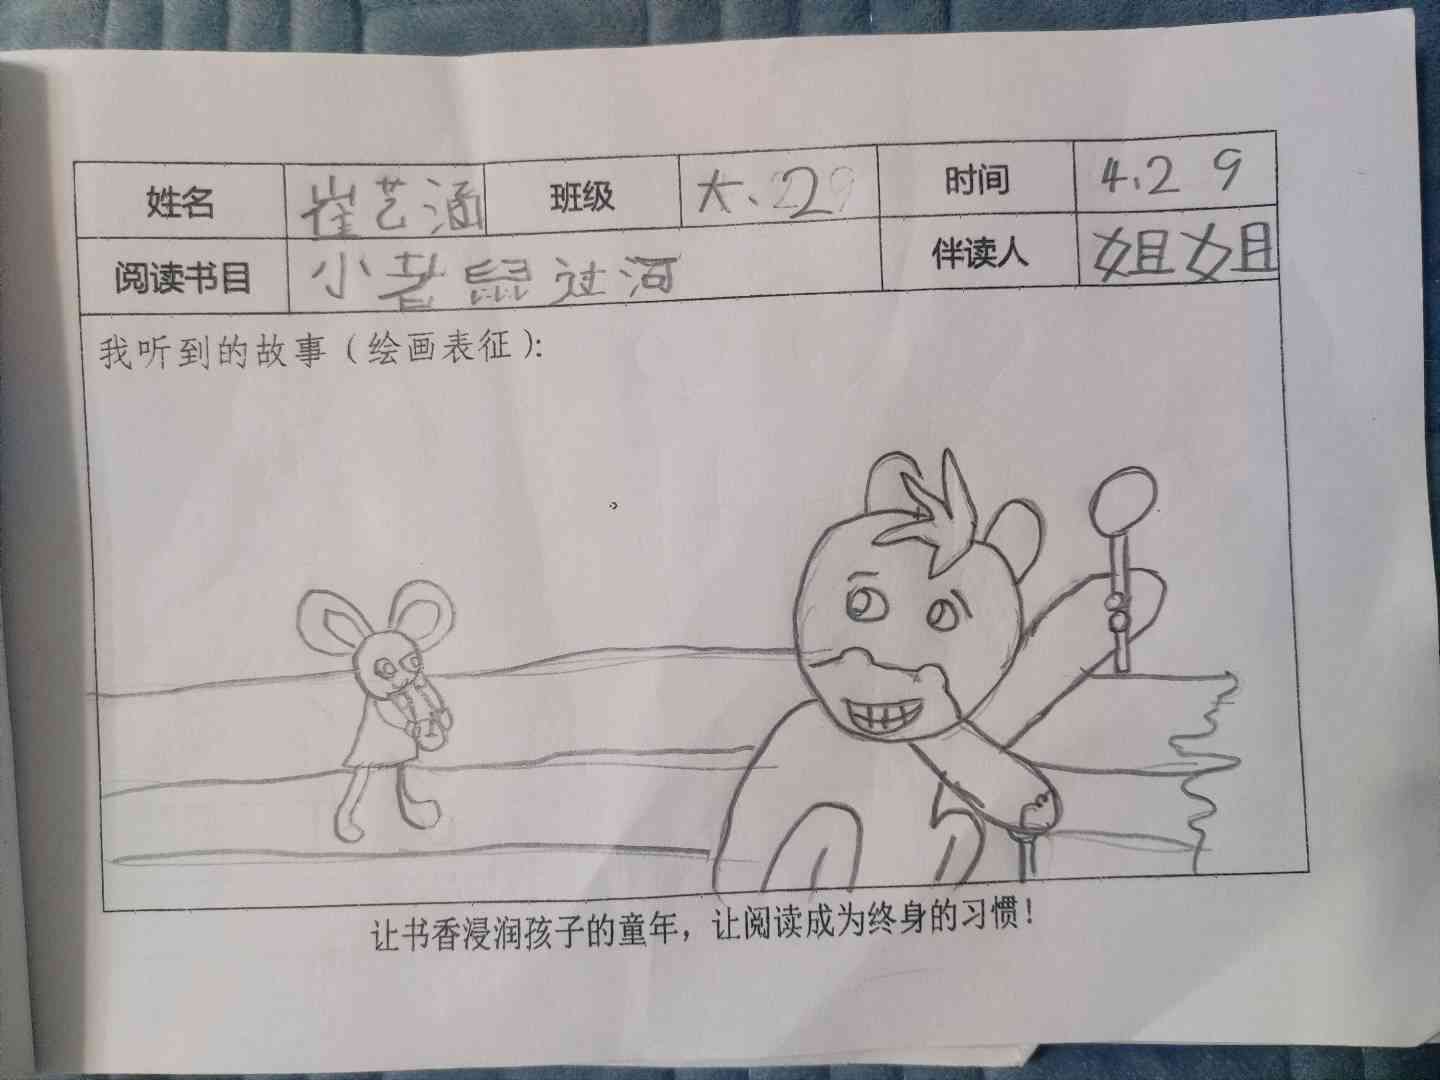 姓名 崔艺涵 班级 大、2 时间 4.29
阅读书目 小老鼠过河 伴读人 姐姐
我听到的故事（绘画表征）：
让书香浸润孩子的童年，让阅读成为终身的习惯！